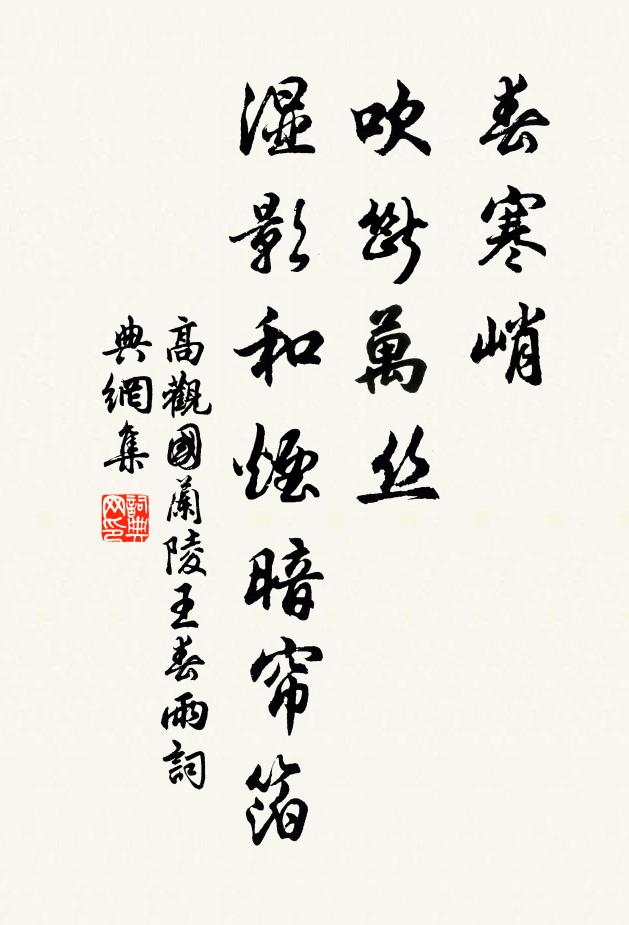 春寒峭
吹斷萬丝
湿影和煙暗帘箔
高觀國蘭陵王春雨詞
典網集
詞典网印